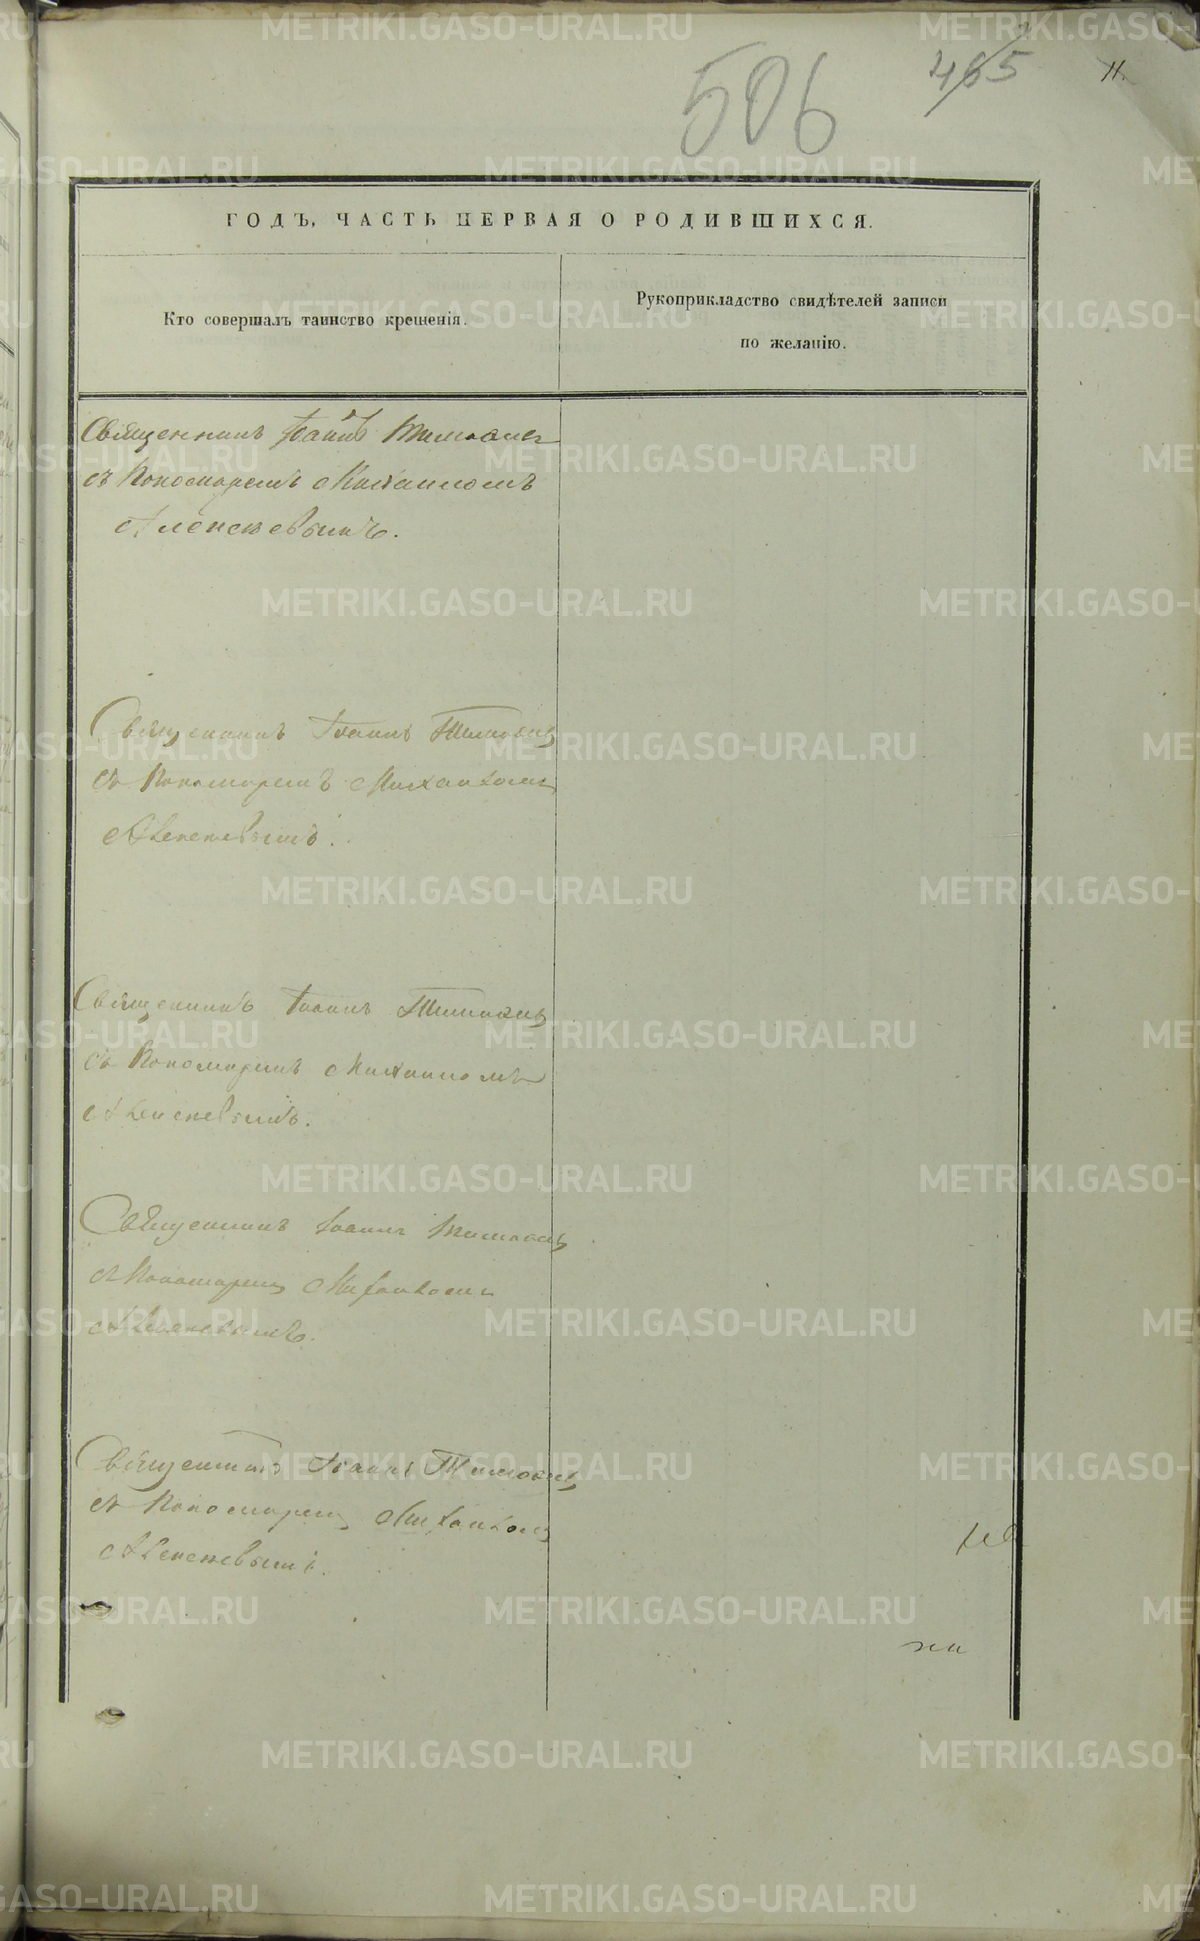 506
465
11.
ГОДЪ, ЧАСТЬ ПЕРВАЯ О РОДИВШИХСЯ.
Кто совершалъ таинство крещенія.
Рукоприкладство свидѣтелей записи
по желанію.
Священникъ Іоаннъ
съ Пономаремъ Михаиломъ
Алексѣевымъ.
Священникъ Іоаннъ
съ Пономаремъ Михаиломъ
Алексѣевымъ.
Священникъ Іоаннъ
съ Пономаремъ Михаиломъ
Алексѣевымъ.
Священникъ Іоаннъ
съ Пономаремъ Михаиломъ
Алексѣевымъ.
Священникъ Іоаннъ
съ Пономаремъ Михаиломъ
Алексѣевымъ.
METRIKI.GASO-URAL.RU